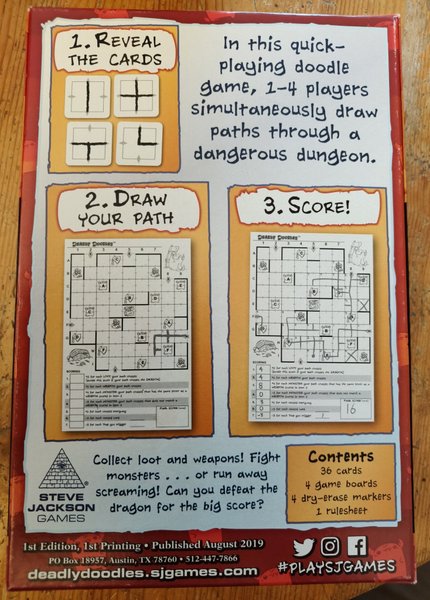 1. REVEAL
THE CARDS
In this quick-
playing doodle
game, 1-4 players
simultaneously draw
paths through a
dangerous dungeon.
2. DRAW
YOUR PATH
3. SCORE!
DEADLY DOODLES
DEADLY DOODLES
SCORING
16
Collect loot and weapons! Fight
monsters . . . or run away
screaming! Can you defeat the
dragon for the big score?
STEVE
JACKSON
GAMES
Contents
36 cards
4 game boards
4 dry-erase markers
1 rulesheet
1st Edition, 1st Printing • Published August 2019
PO Box 18957, Austin, TX 78760 • 512-447-7866
deadlydoodles.sjgames.com
#PLAYSJGAMES